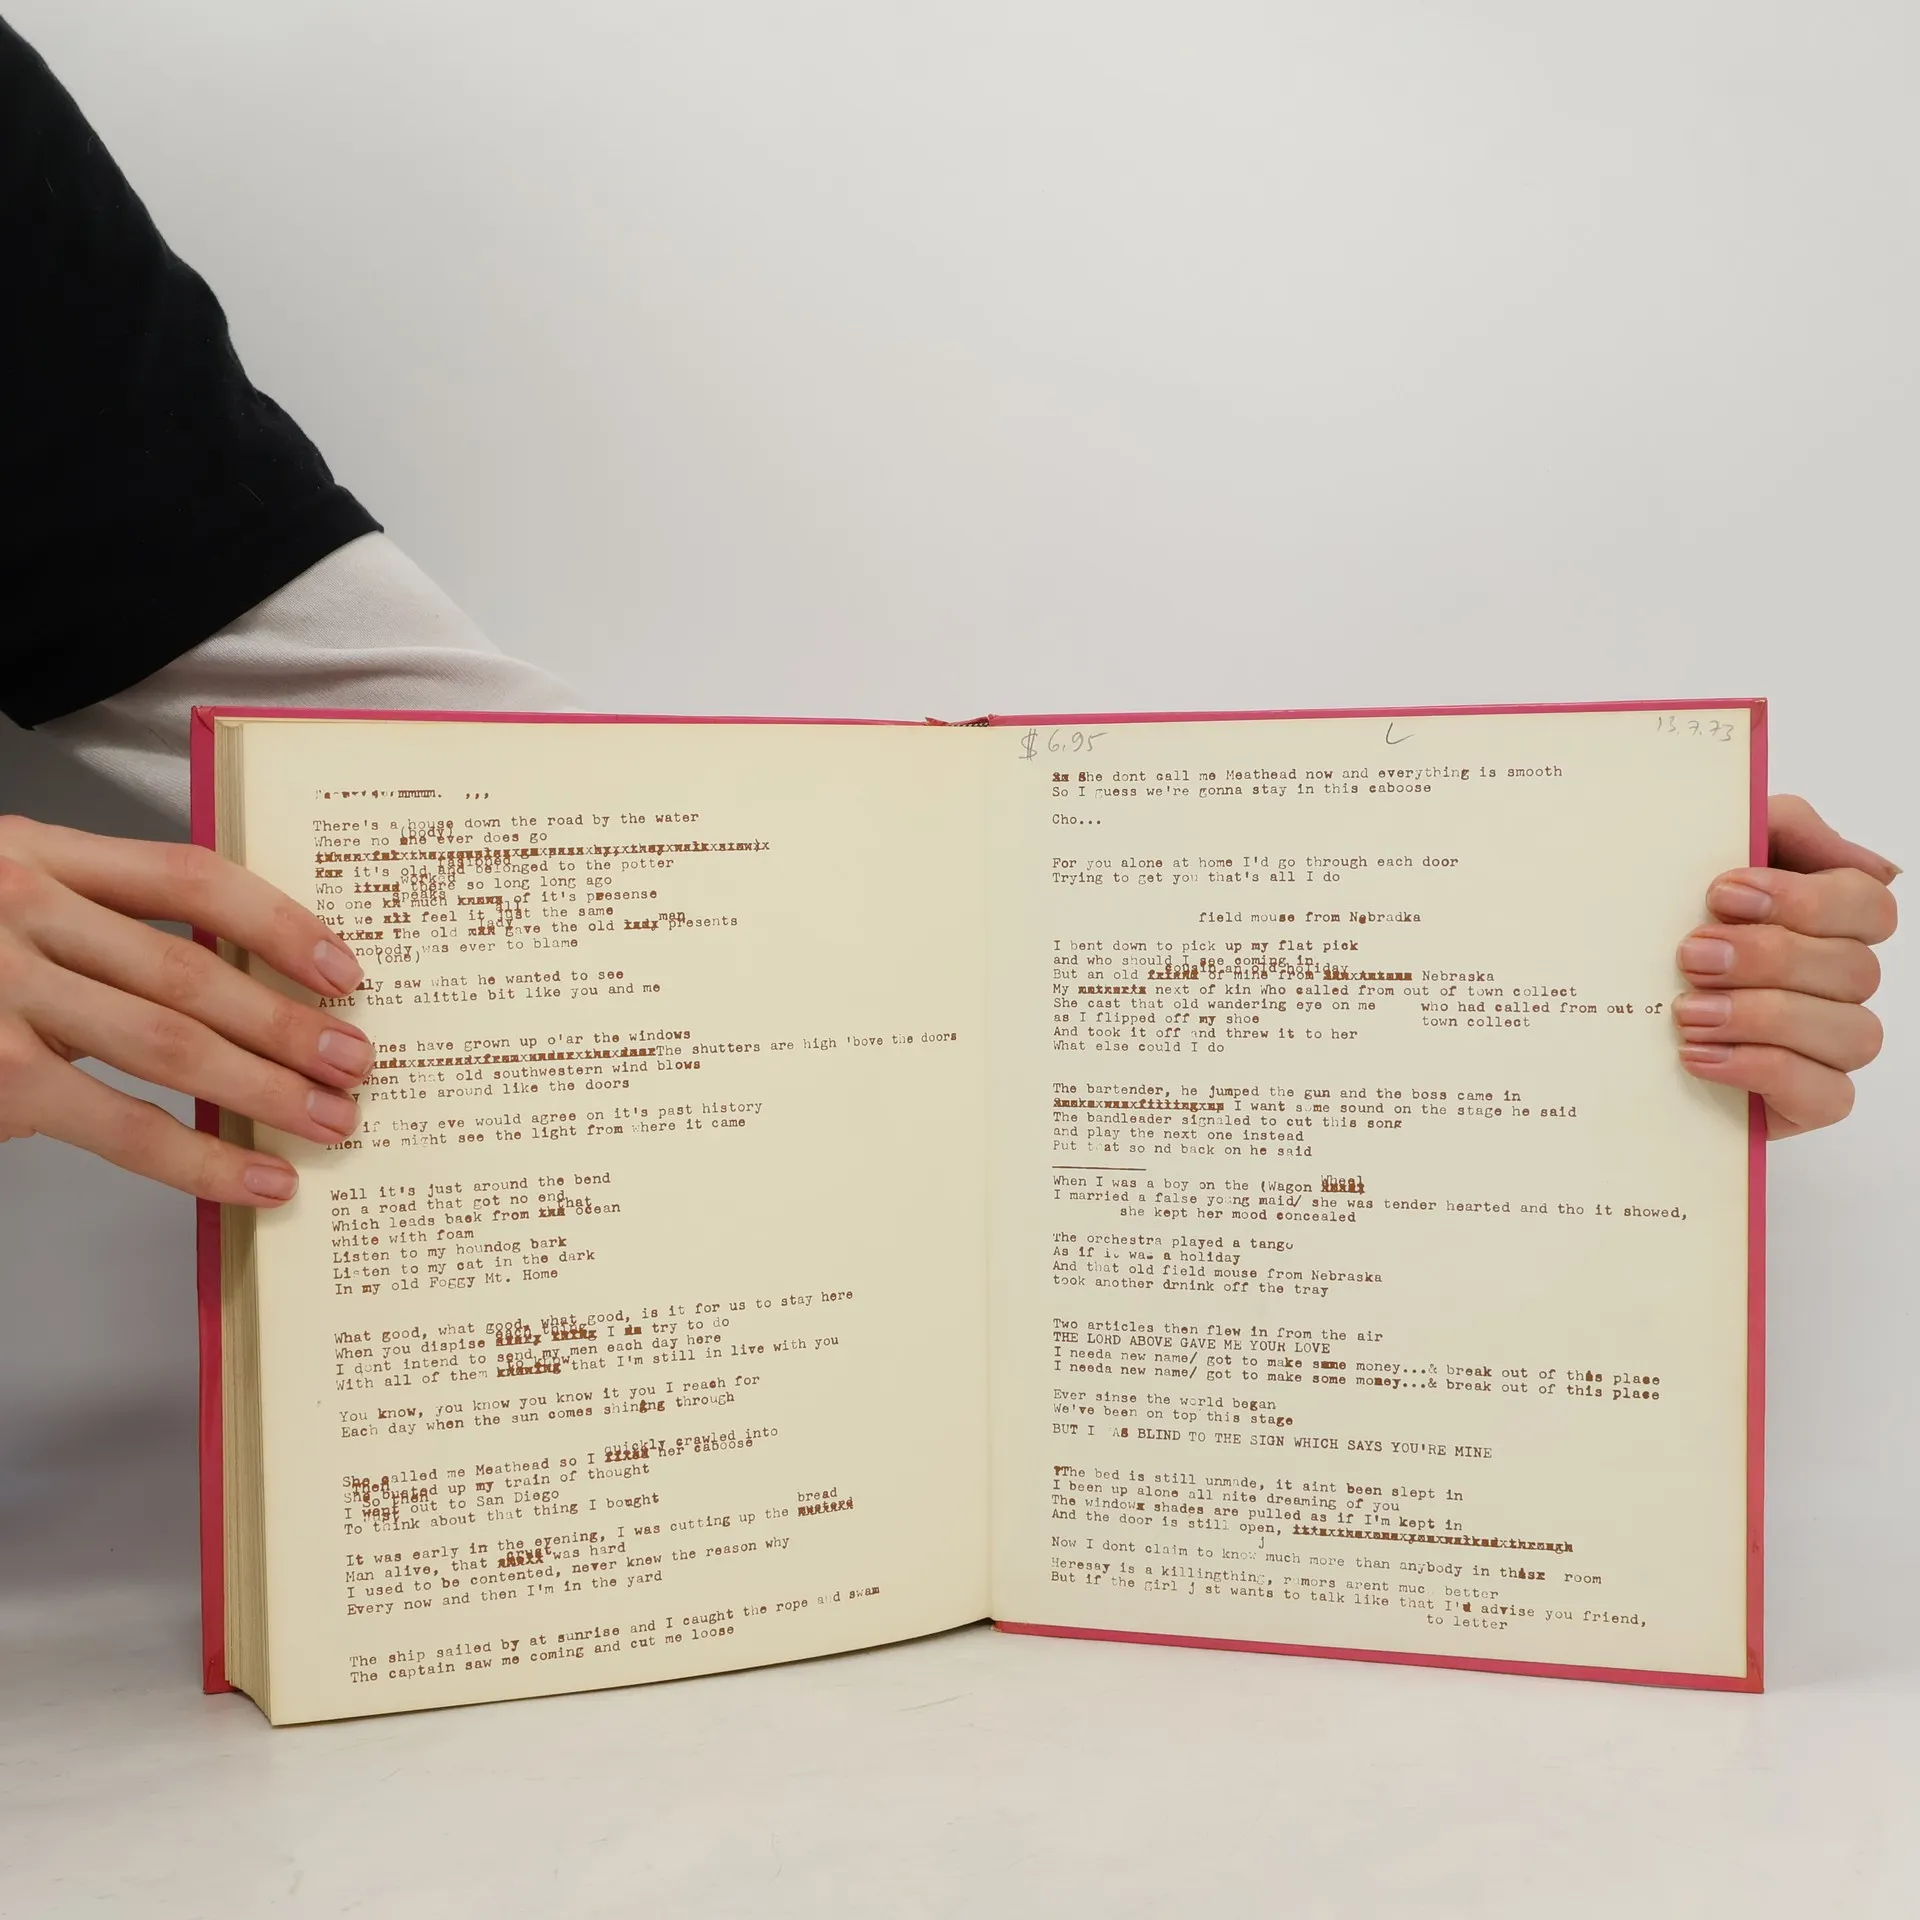 There's a house down the road by the water
(body)
Where no one ever does go
fasioned
For it's old and belonged to the potter
worked
Who lived there so long long ago
speaks
No one much knows of it's presense
all
But we all feel it just the same
lady man
The old gave the old lady presents
nobody was ever to blame
(one)
saw what he wanted to see
Aint that alittle bit like you and me
have grown up o'ar the windows
The shutters are high 'bove the doors
when that old southwestern wind blows
rattle around like the doors
if they eve would agree on it's past history
Then we might see the light from where it came
Well it's just around the bend
on a road that got no end
that
Which leads back from the ocean
white with foam
Listen to my houndog bark
Listen to my cat in the dark
In my old Foggy Mt. Home
What good, what good, what good, is it for us to stay here
each thing
When you dispise every thing I do try to do
I dont intend to send my men each day here
to know
With all of them knowing that I'm still in live with you
You know, you know it you I reach for
Each day when the sun comes shining through
quickly crawled into
She called me Meathead so I fixed her caboose
Then
She busted up my train of thought
So then
I went out to San Diego
just
To think about that thing I bought
bread
It was early in the evening, I was cutting up the mustard
crust
Man alive, that was hard
I used to be contented, never knew the reason why
Every now and then I'm in the yard
The ship sailed by at sunrise and I caught the rope and swam
The captain saw me coming and cut me loose
$ 6.95
L
13.7.73
She dont call me Meathead now and everything is smooth
So I guess we're gonna stay in this caboose
Cho...
For you alone at home I'd go through each door
Trying to get you that's all I do
field mouse from Nebradka
I bent down to pick up my flat pick
and who should I see coming in
cousin an old holiday
But an old friend of mine from Nebraska
My next of kin Who called from out of town collect
She cast that old wandering eye on me who had called from out of
as I flipped off my shoe town collect
And took it off and threw it to her
What else could I do
The bartender, he jumped the gun and the boss came in
I want some sound on the stage he said
The bandleader signaled to cut this song
and play the next one instead
Put that so nd back on he said
Wheel
When I was a boy on the (Wagon
I married a false young maid/ she was tender hearted and tho it showed,
she kept her mood concealed
The orchestra played a tango
As if it was a holiday
And that old field mouse from Nebraska
took another drnink off the tray
Two articles then flew in from the air
THE LORD ABOVE GAVE ME YOUR LOVE
I needa new name/ got to make some money...& break out of this place
I needa new name/ got to make some money...& break out of this place
Ever sinse the world began
We've been on top this stage
BUT I AS BLIND TO THE SIGN WHICH SAYS YOU'RE MINE
The bed is still unmade, it aint been slept in
I been up alone all nite dreaming of you
The windowx shades are pulled as if I'm kept in
And the door is still open, its the one you walked through
j
Now I dont claim to know much more than anybody in thisx room
Heresay is a killingthing, rumors arent muc better
But if the girl j st wants to talk like that I'd advise you friend,
to letter